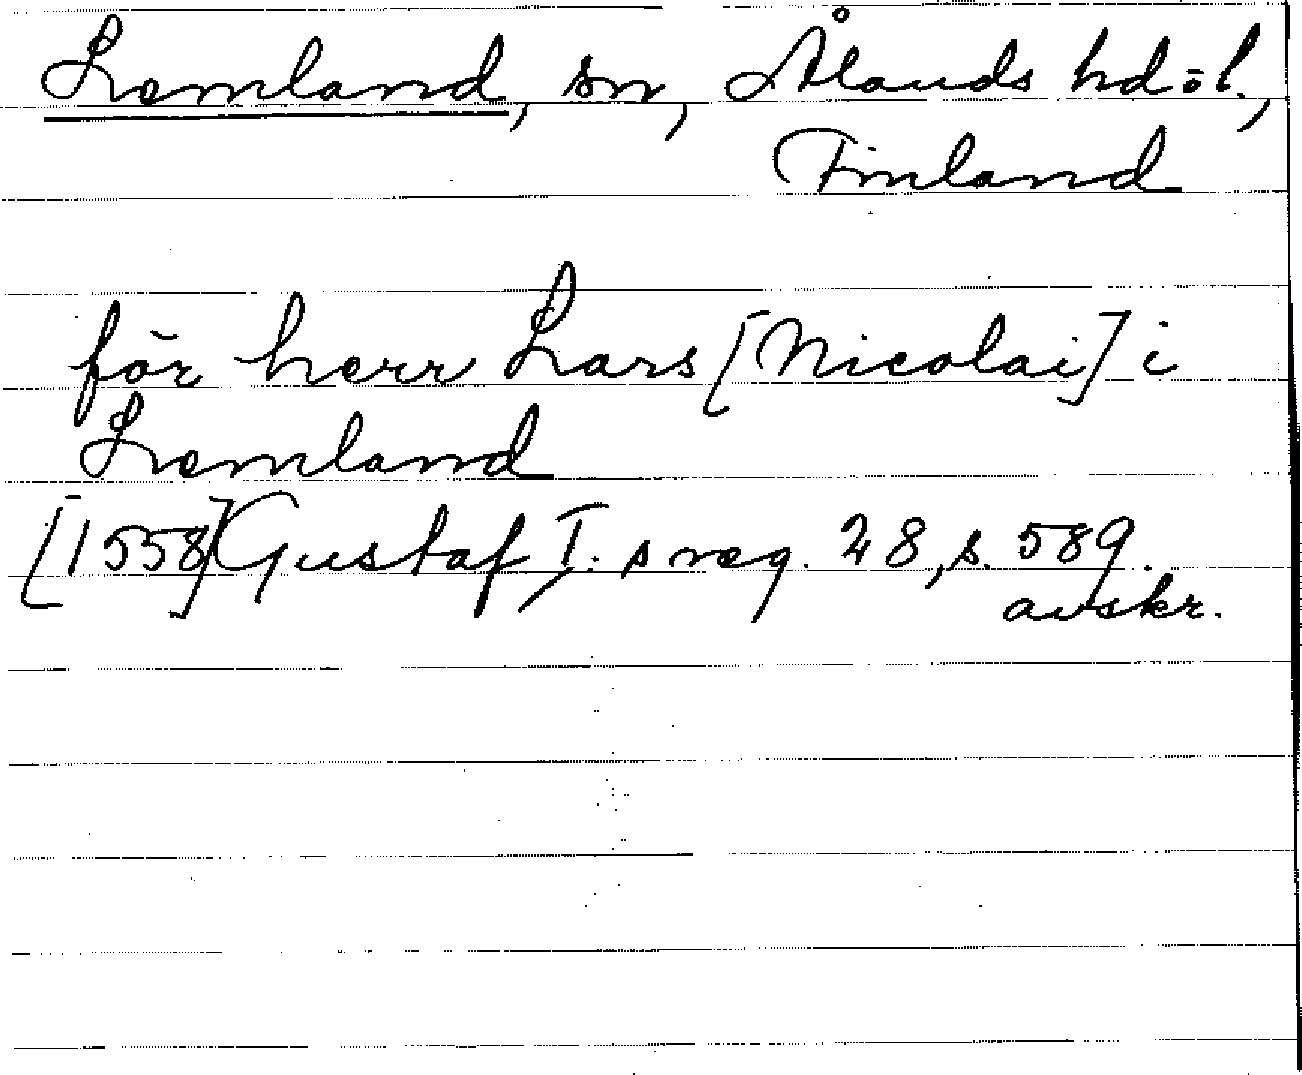 Lemland, sn, Ålands hd o l.,
Finland
för herr Lars [Nicolai] i
Lemland
[1558] Gustaf I:s reg. 28, s. 589.
avskr.